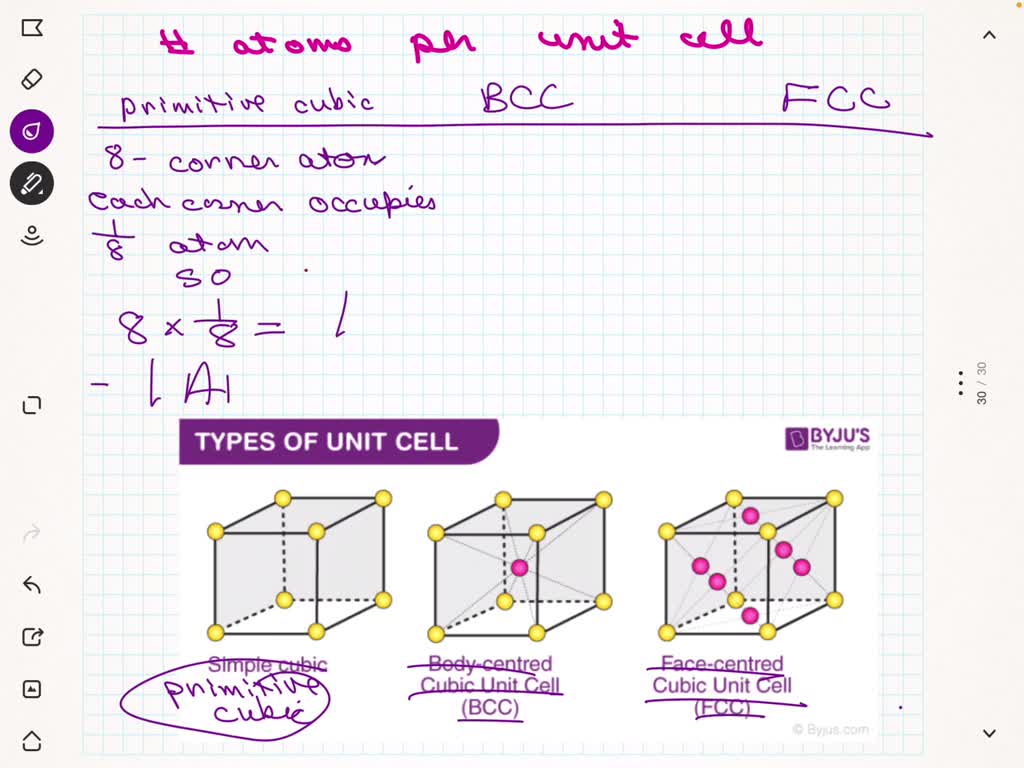 # atoms per unit cell
primitive cubic BCC FCC
8 - corner atom
each corner occupies
1/8 atom
so
8 x 1/8 = 1
- 1 At
TYPES OF UNIT CELL
BYJU'S
The Learning App
Simple cubic
primitive
cubic
Body-centred
Cubic Unit Cell
(BCC)
Face-centred
Cubic Unit Cell
(FCC)
© Byjus.com
30 / 30